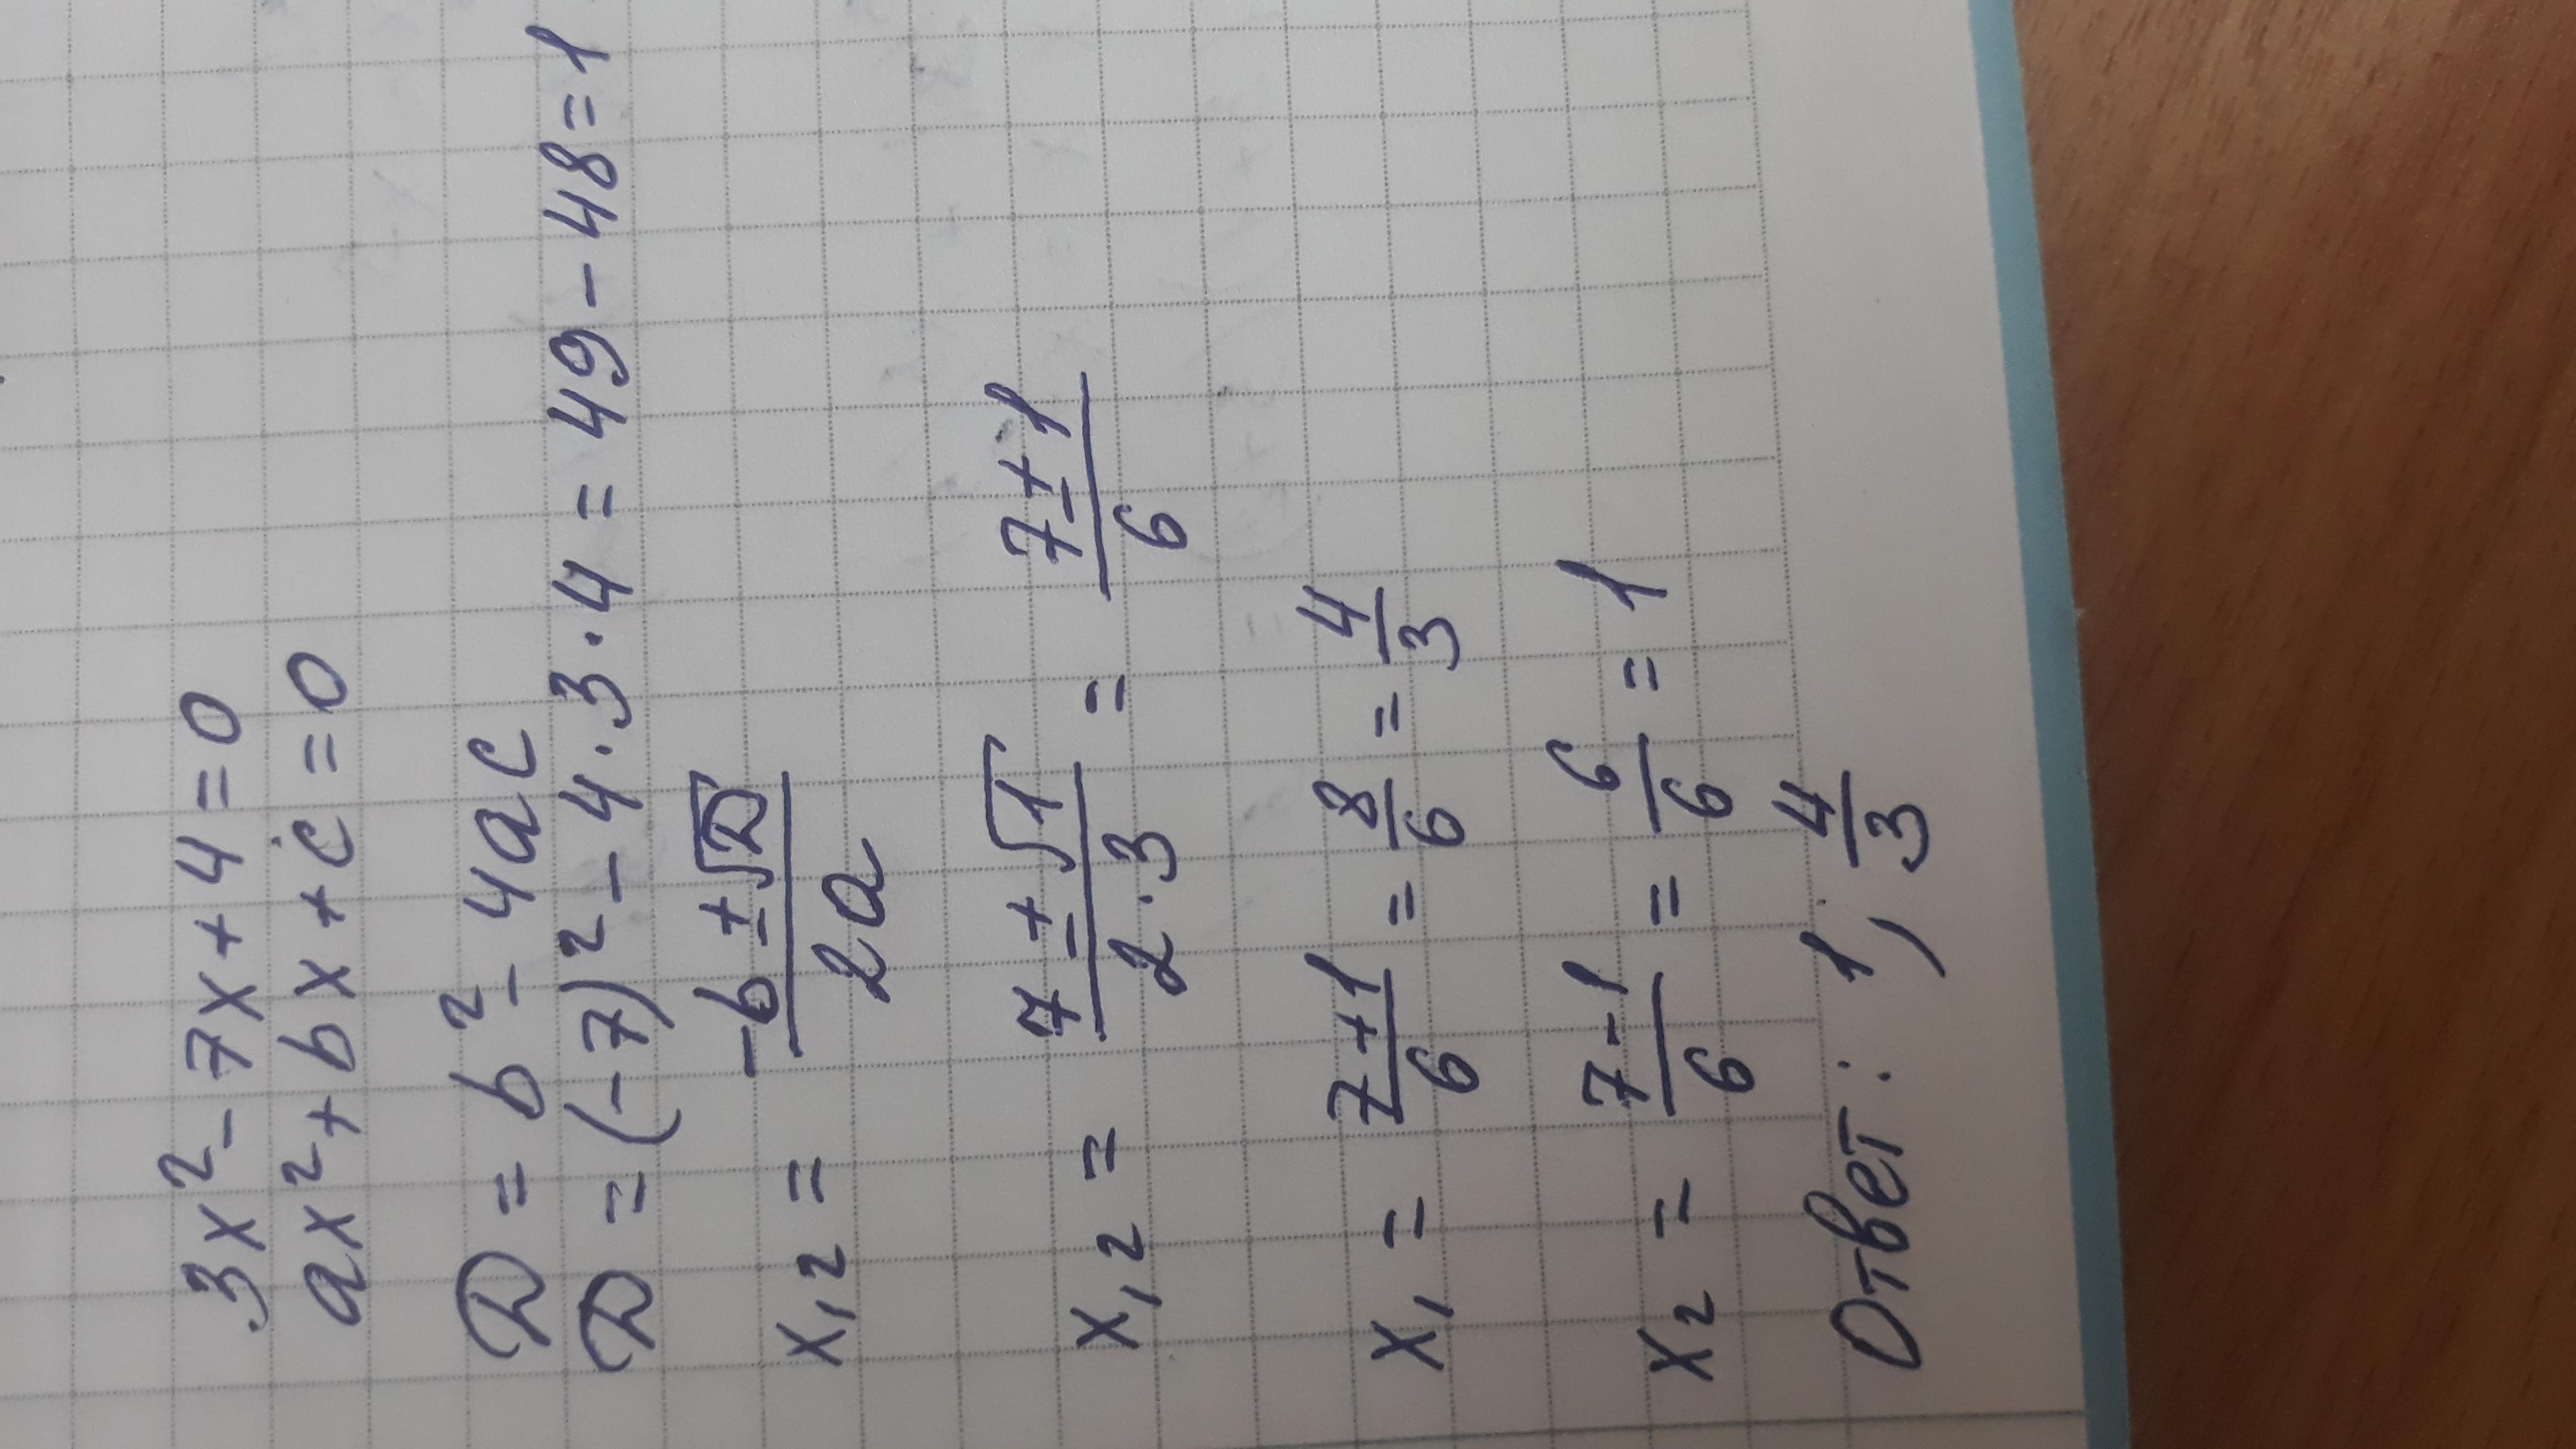 3x² - 7x + 4 = 0
ax² + bx + c = 0
D = b² - 4ac
D = (-7)² - 4 · 3 · 4 = 49 - 48 = 1
x₁,₂ = (-b ± √D) / 2a
x₁,₂ = (7 ± √1) / (2 · 3) = (7 ± 1) / 6
x₁ = (7 + 1) / 6 = 8/6 = 4/3
x₂ = (7 - 1) / 6 = 6/6 = 1
Ответ: 1; 4/3